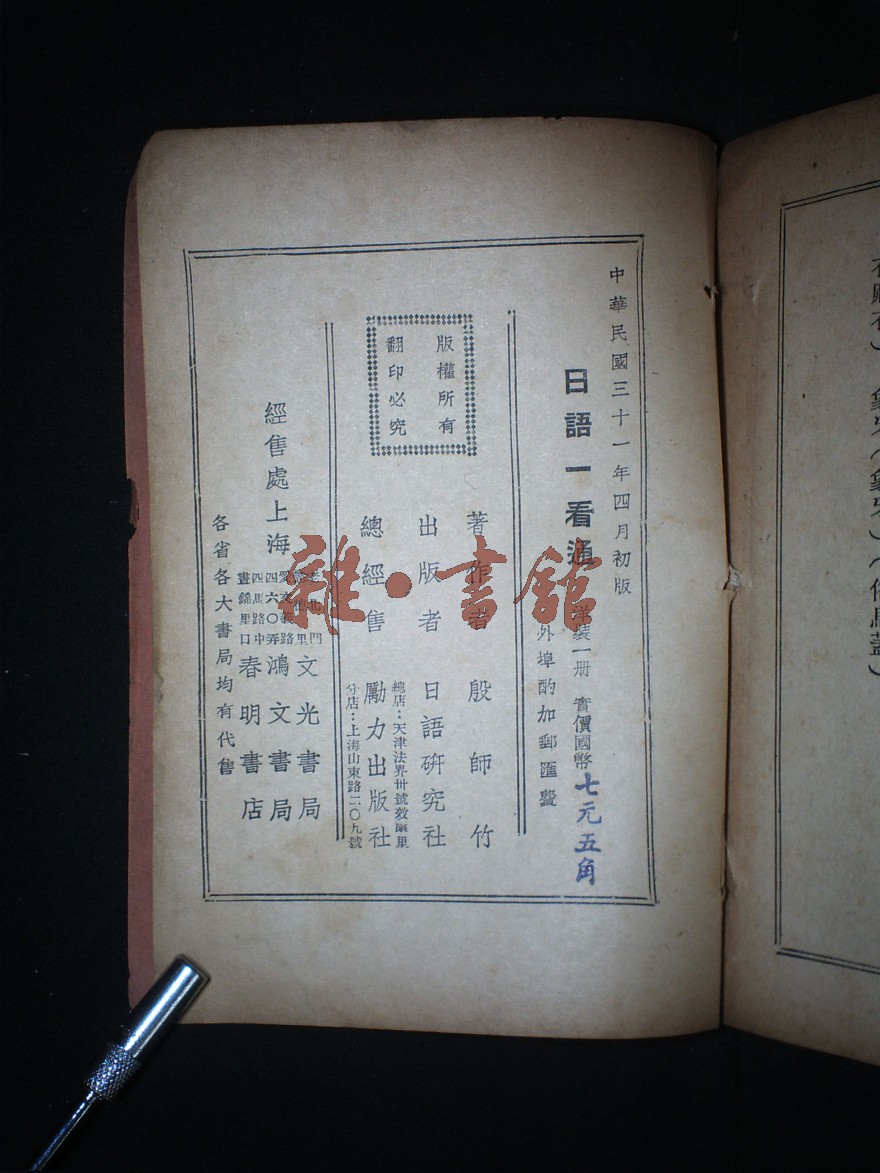 中華民國三十一年四月初版
日語一看通 洋裝一册 實價國幣七元五角
外埠酌加郵匯費
版權所有
翻印必究
著作者 殷師竹
出版者 日語研究社
總經售 勵力出版社
總店：天津法界卅號教麻里
分店：上海山東路二〇九號
經售處上海
文光書局
四六〇弄
鴻文書局
四馬路中
畫錦里口
春明書店
各省各大書局均有代售
雜·書館